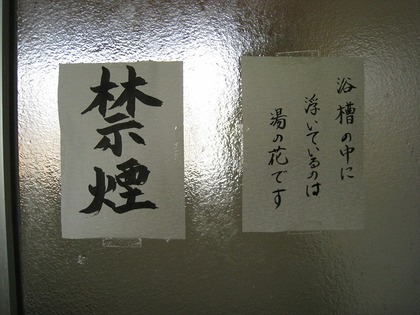 禁煙
浴槽の中に
浮いているのは
湯の花です